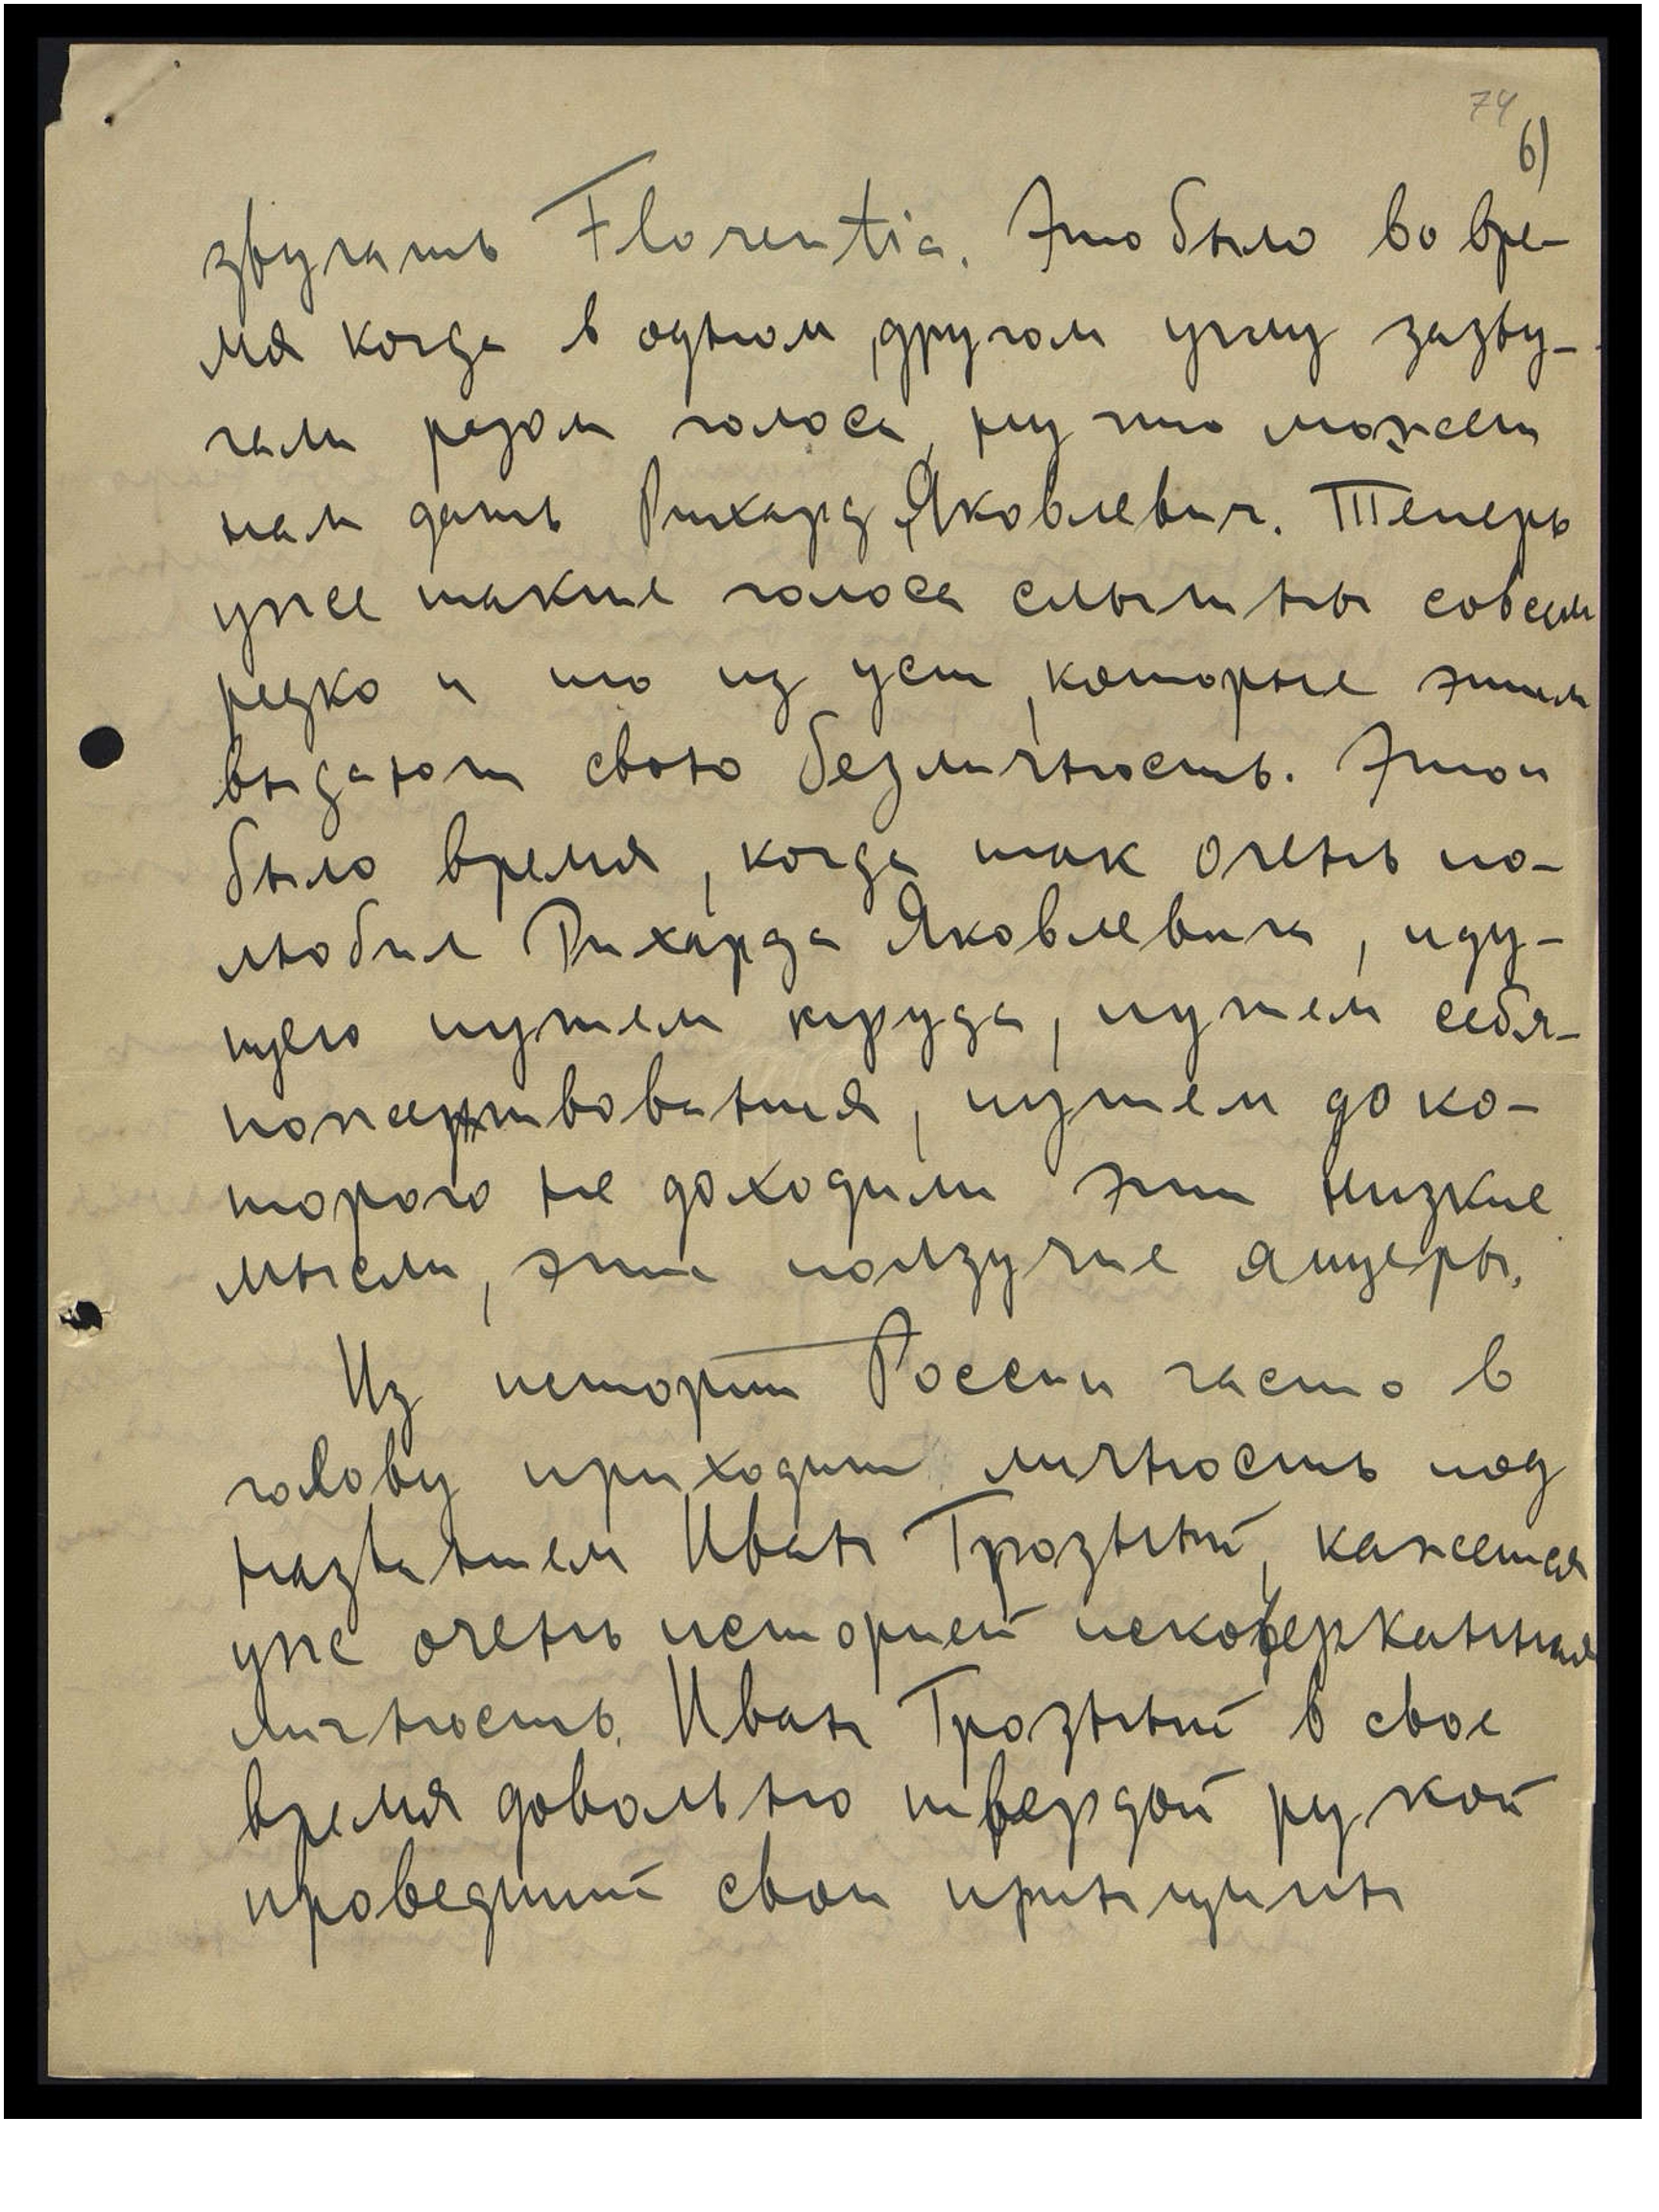 74
6)
звучать Florentia. Это было во вре-
мя когда в одном, другом углу зазву-
чали разом голоса, ну что может
нам дать Рихард Яковлевич. Теперь
уже такие голоса слышны совсем
редко и то из уст, которые этим
выдают свою безличность. Этои
было время, когда так очень по-
любил Рихарда Яковлевича, иду-
щего путем труда, путем себя-
пожертвования, путем до ко-
торого не доходили эти низкие
мысли, эти ползучие ящеры.
Из истории России часто в
голову приходит личность под
названием Иван Грозный, кажется
уже очень историей исковерканная
личность. Иван Грозный в свое
время довольно твердой рукой
проведший свои принципы